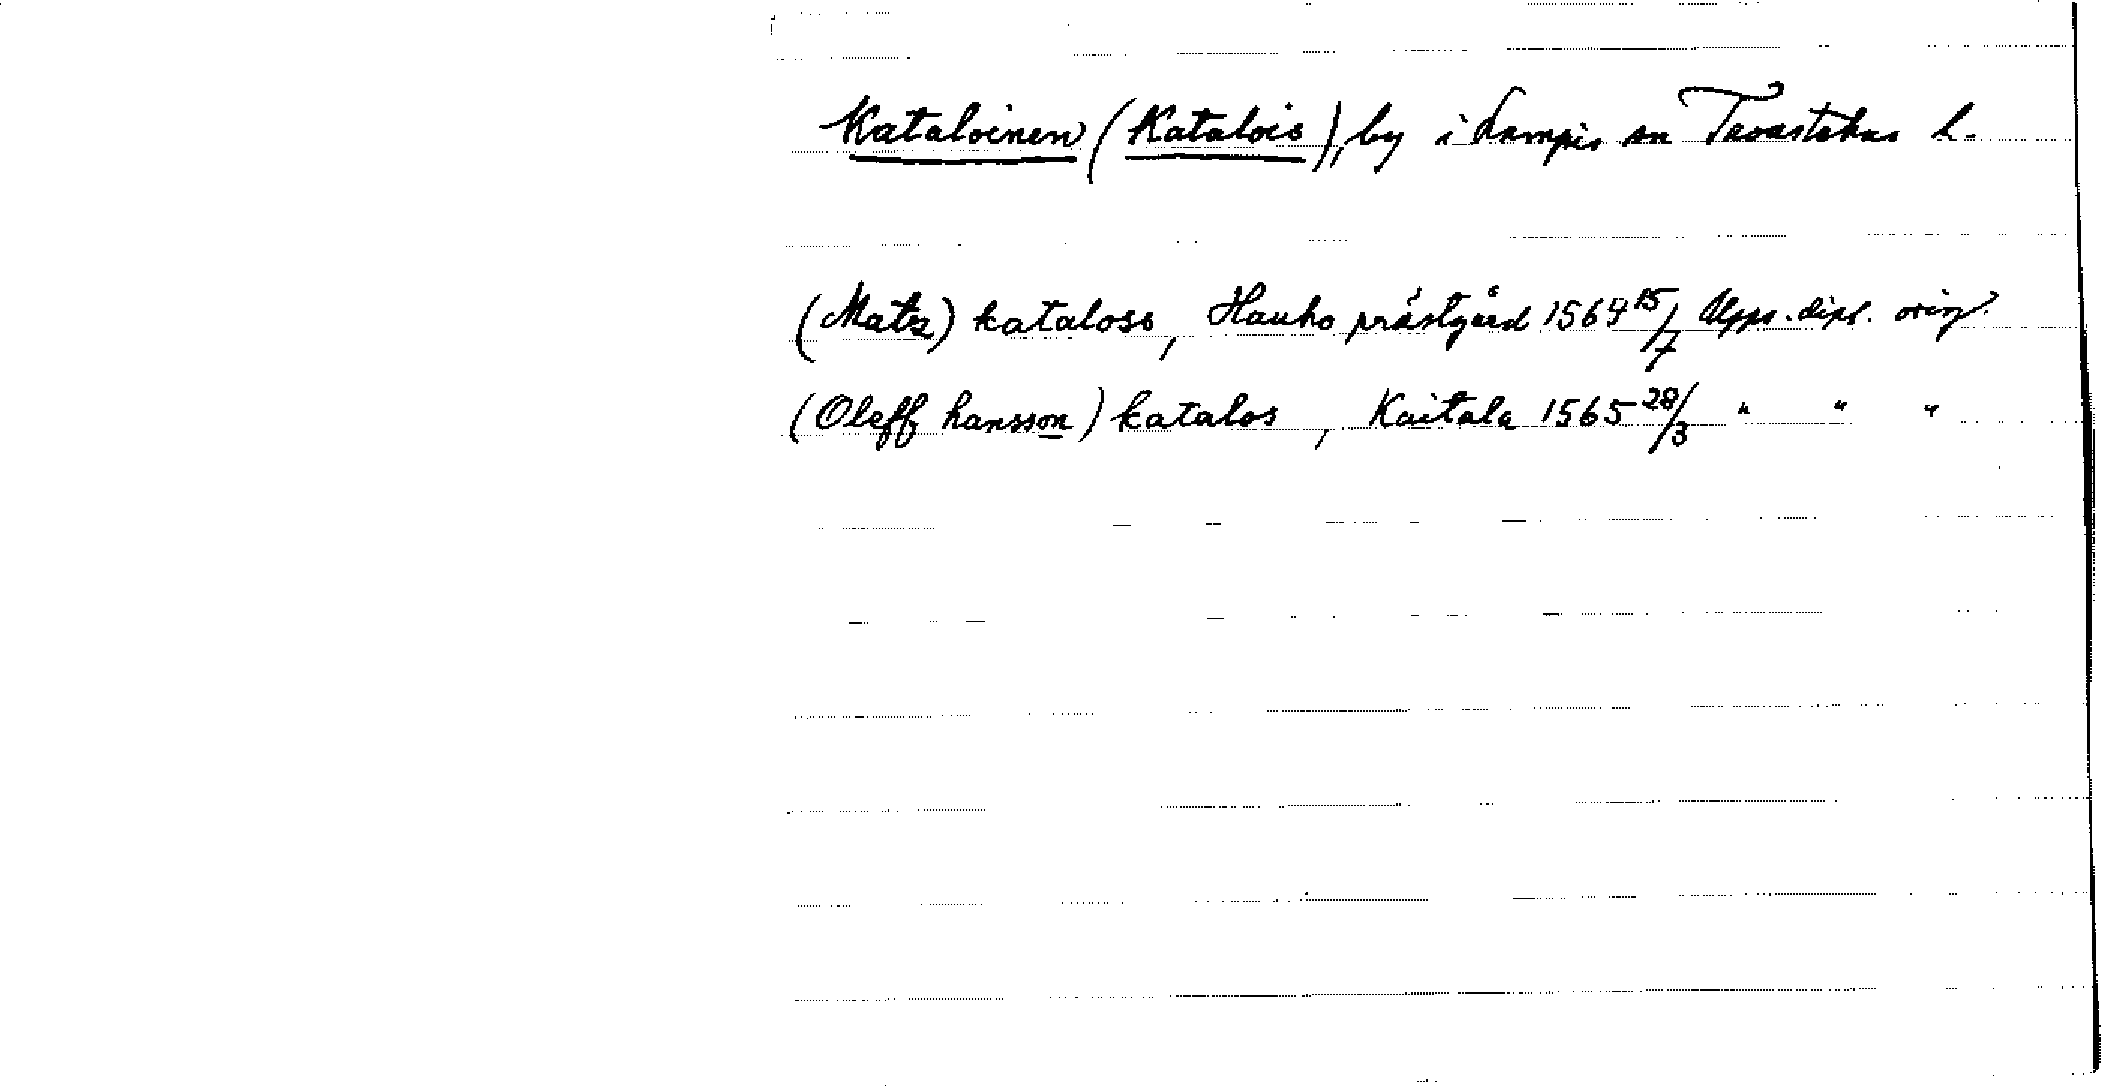 Kataloinen (Katalois), by i Lampis sn Tavastehus l.
(Matz) kataloss, Hauho prästgård 1564 15/7 Upps. dipl. orig.
(Oleff hansson) katalos, Kaitala 1565 28/3 " " "